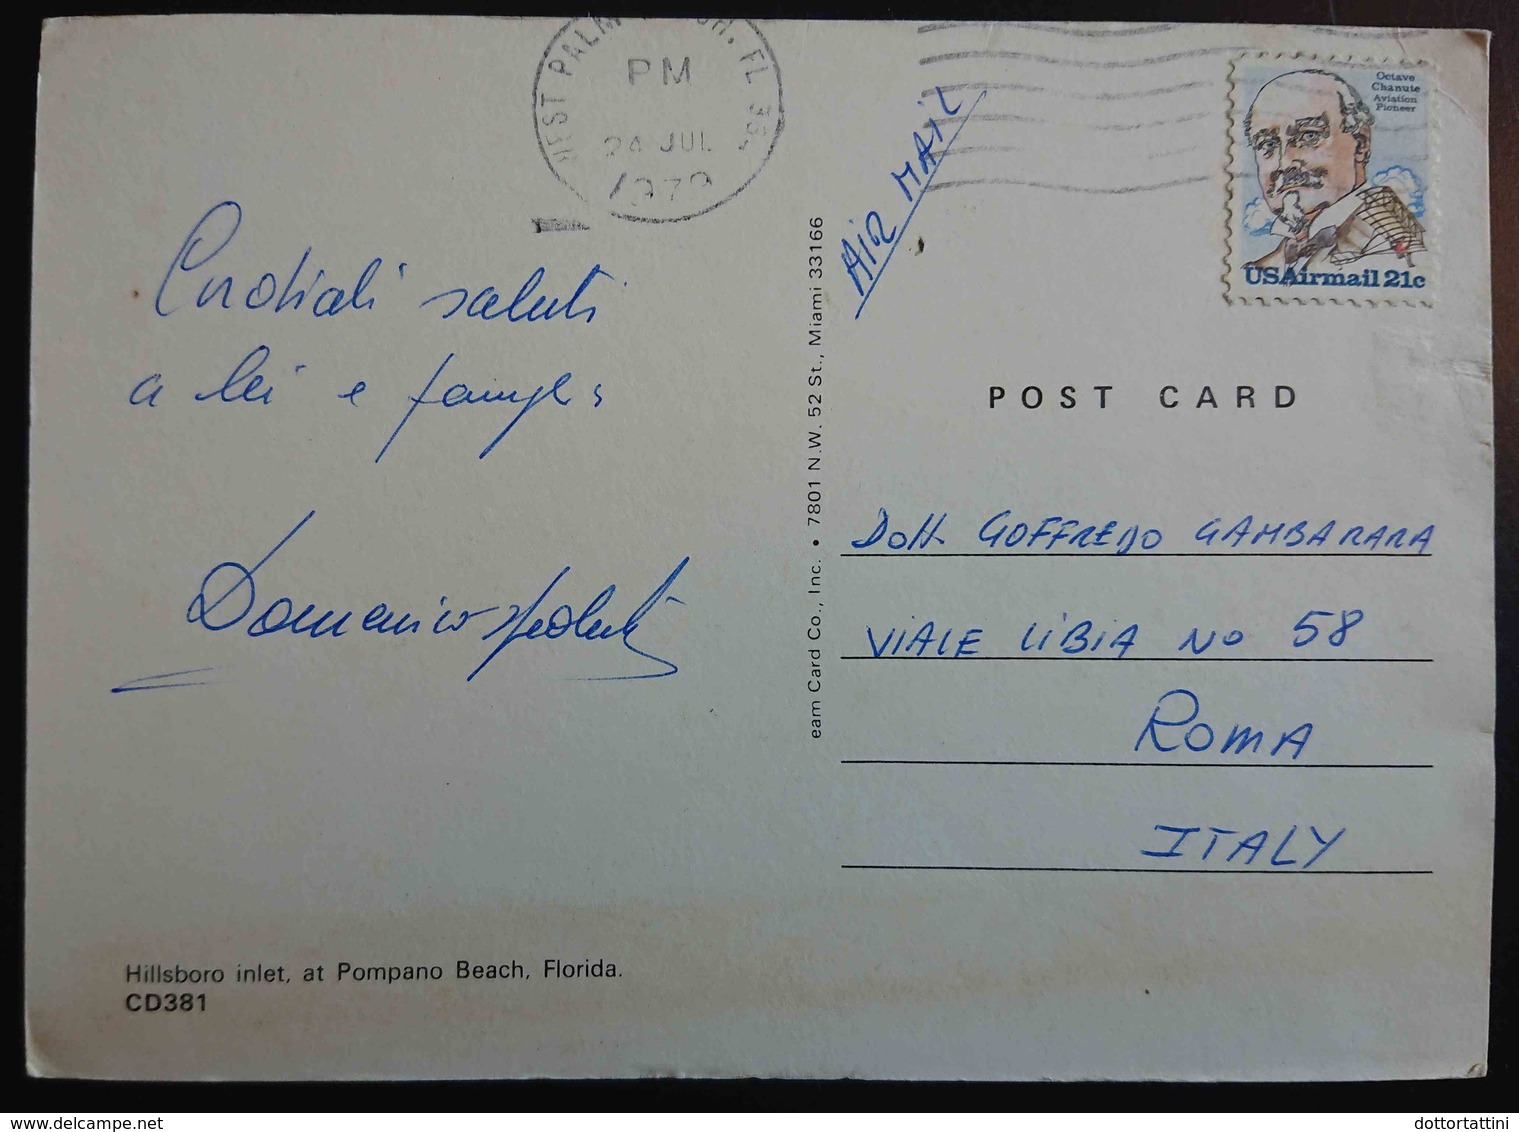 WEST PALM BCH, FL 334
PM
24 JUL
1979
Octave
Chanute
Aviation
Pioneer
USAirmail 21c
AIR MAIL
Cordiali saluti
a lei e
Domenico
eam Card Co., Inc. • 7801 N.W. 52 St., Miami 33166
POST CARD
Dott. GOFFREDO GAMBARARA
VIALE LIBIA No 58
ROMA
ITALY
Hillsboro inlet, at Pompano Beach, Florida.
CD381
delcampe.net
dottortattini